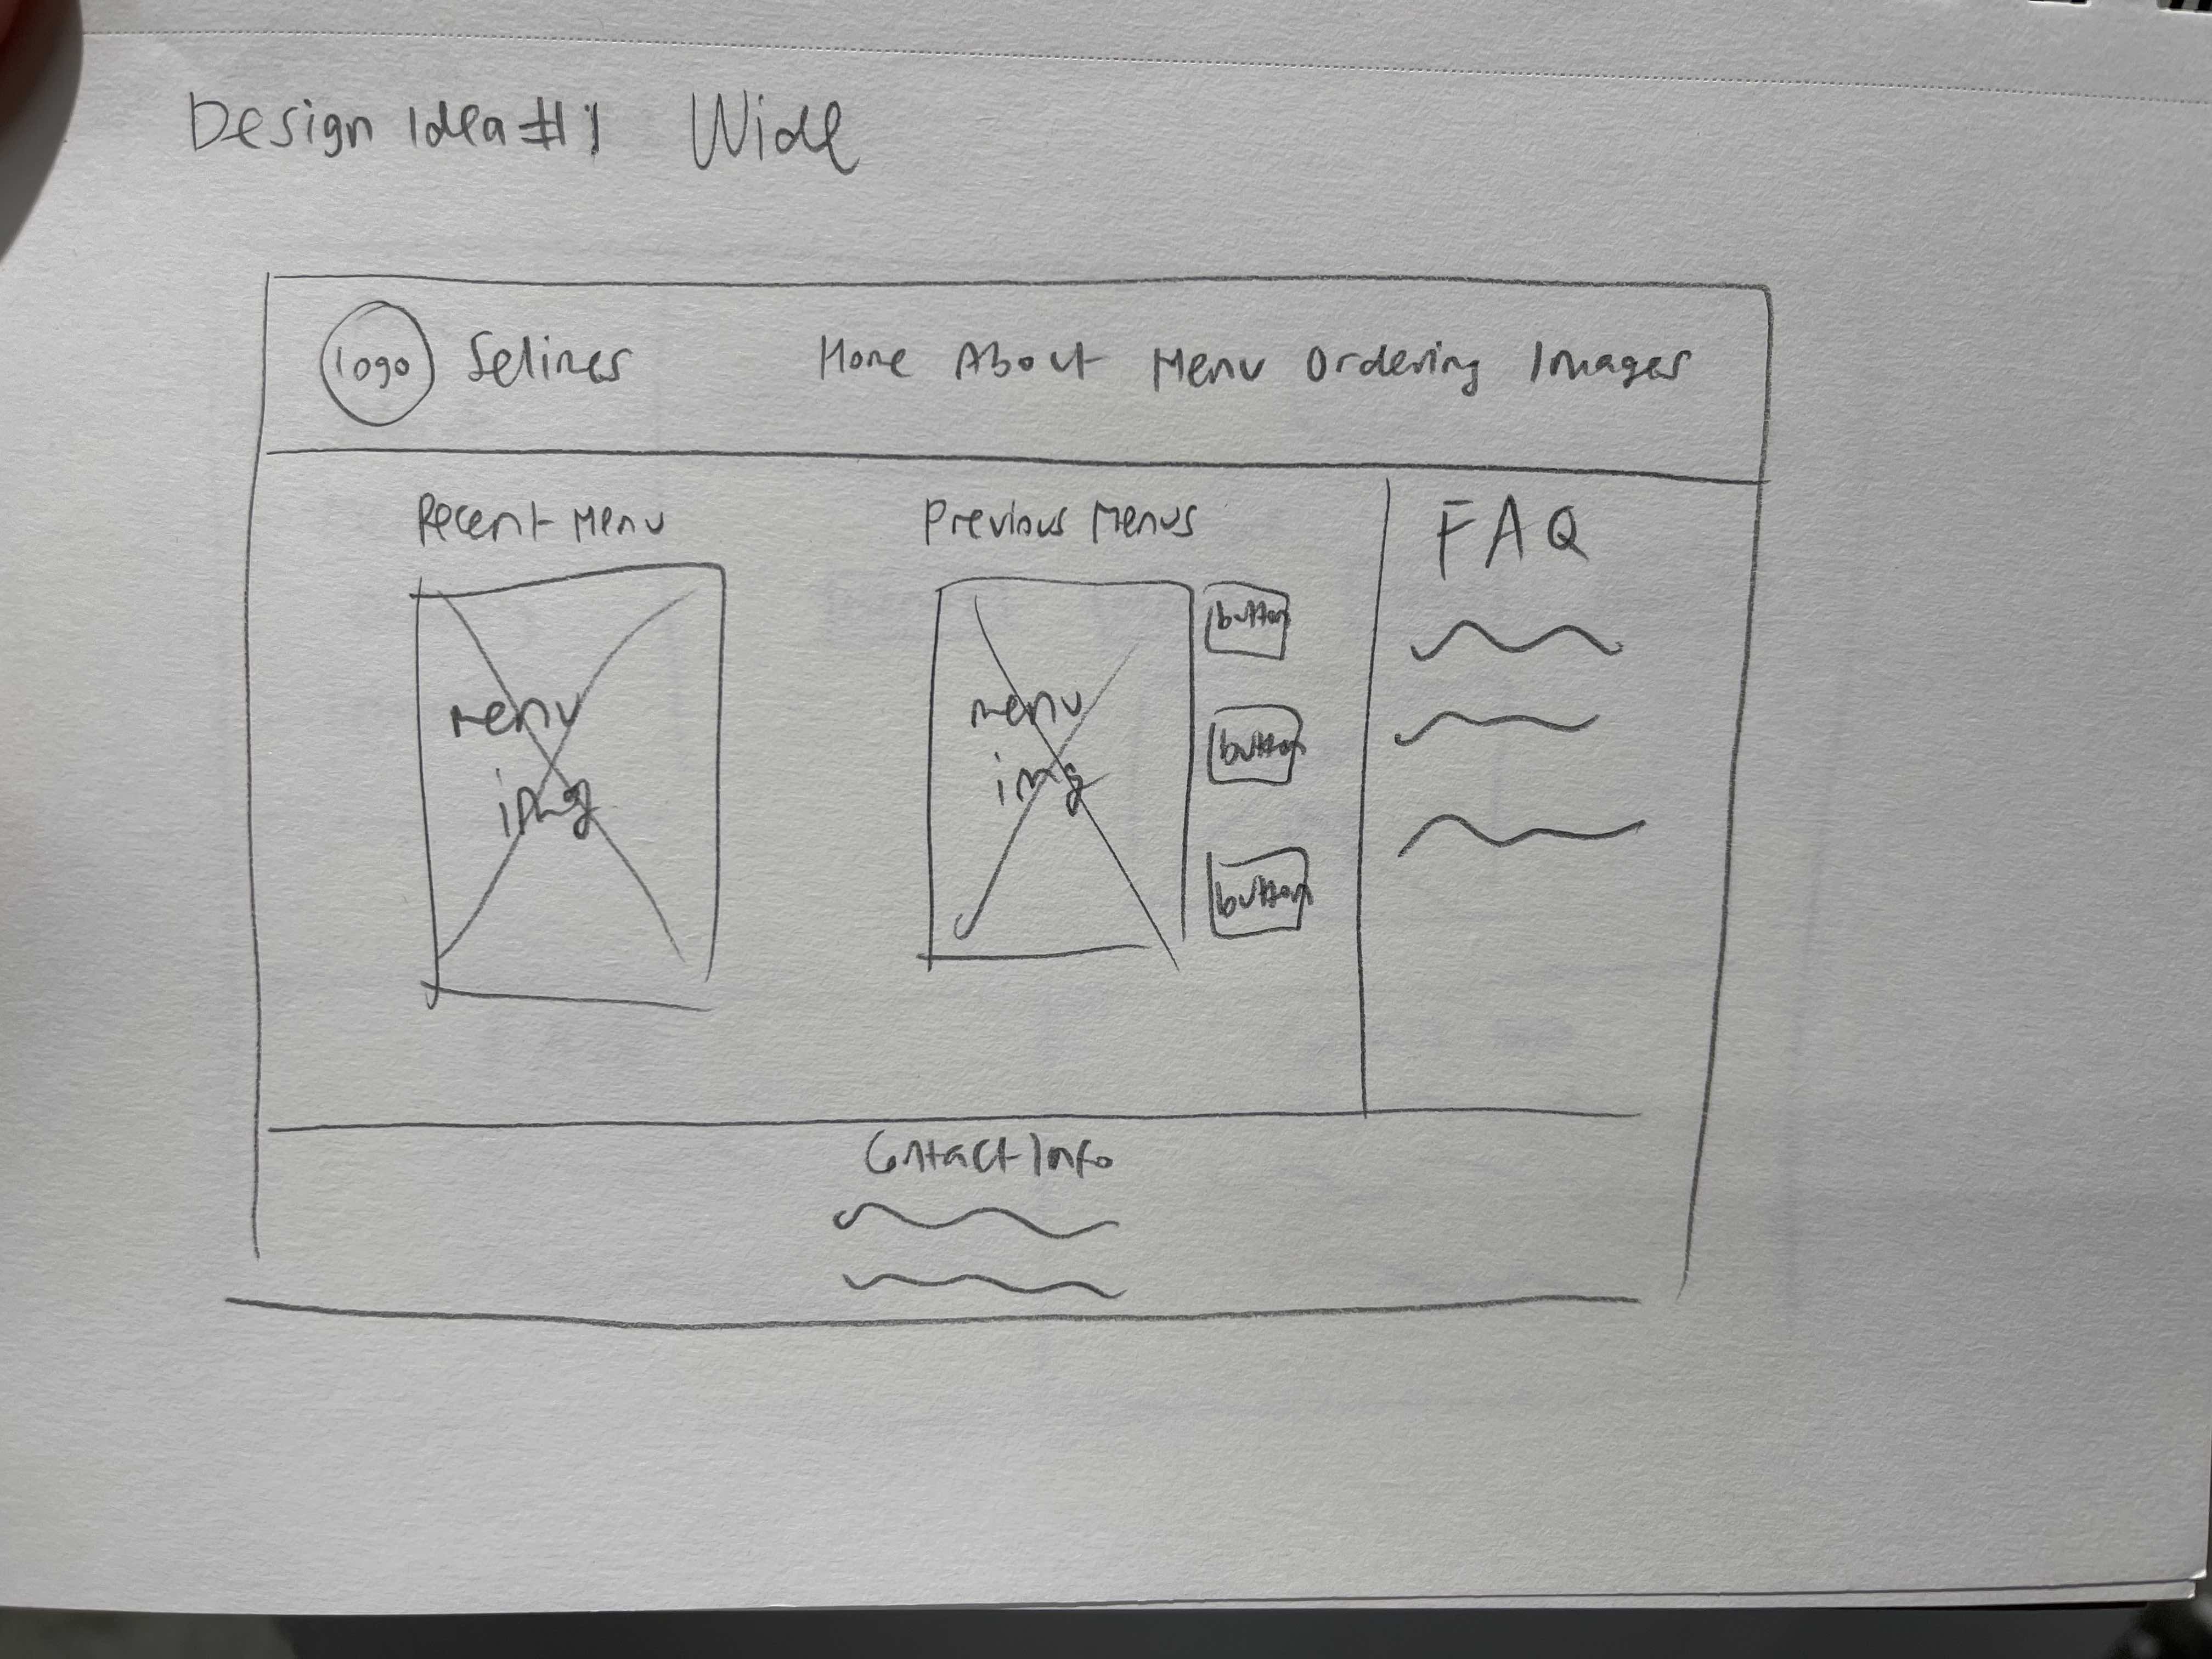 Design Idea #1 Wide
logo Selines Home About Menu Ordering Images
Recent Menu Previous Menus FAQ
menu
img
menu
img
button
button
button
Contact Info